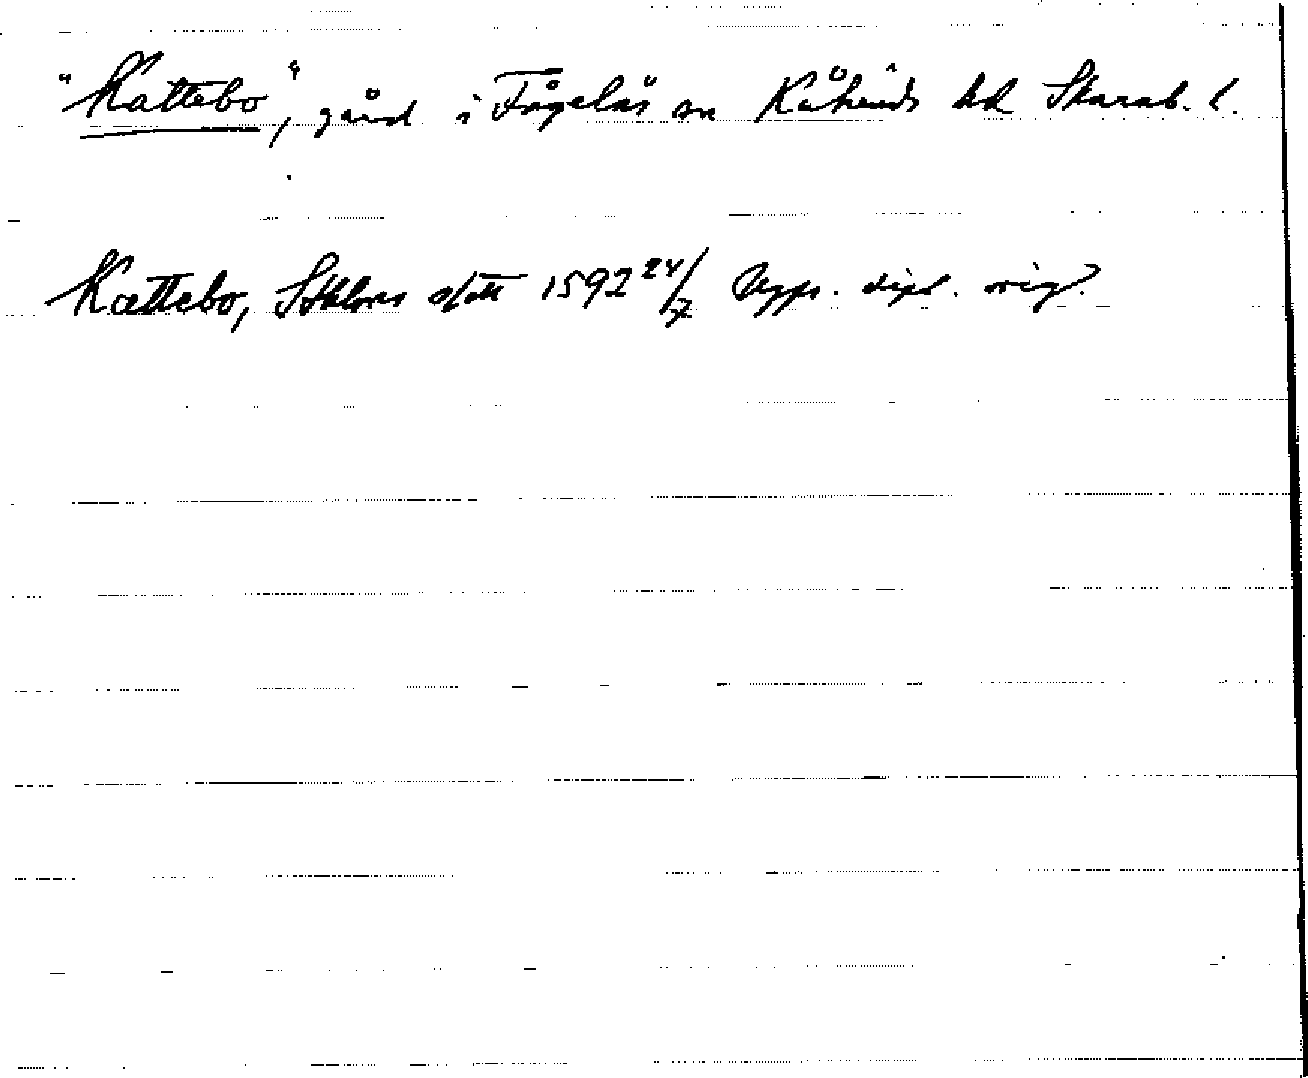 "Kattebo", gård i Fågelås sn Kåkinds hd Skarab. l.
Kattebo, Sthlms slott 1592 24/7 Upps. dipl. orig.